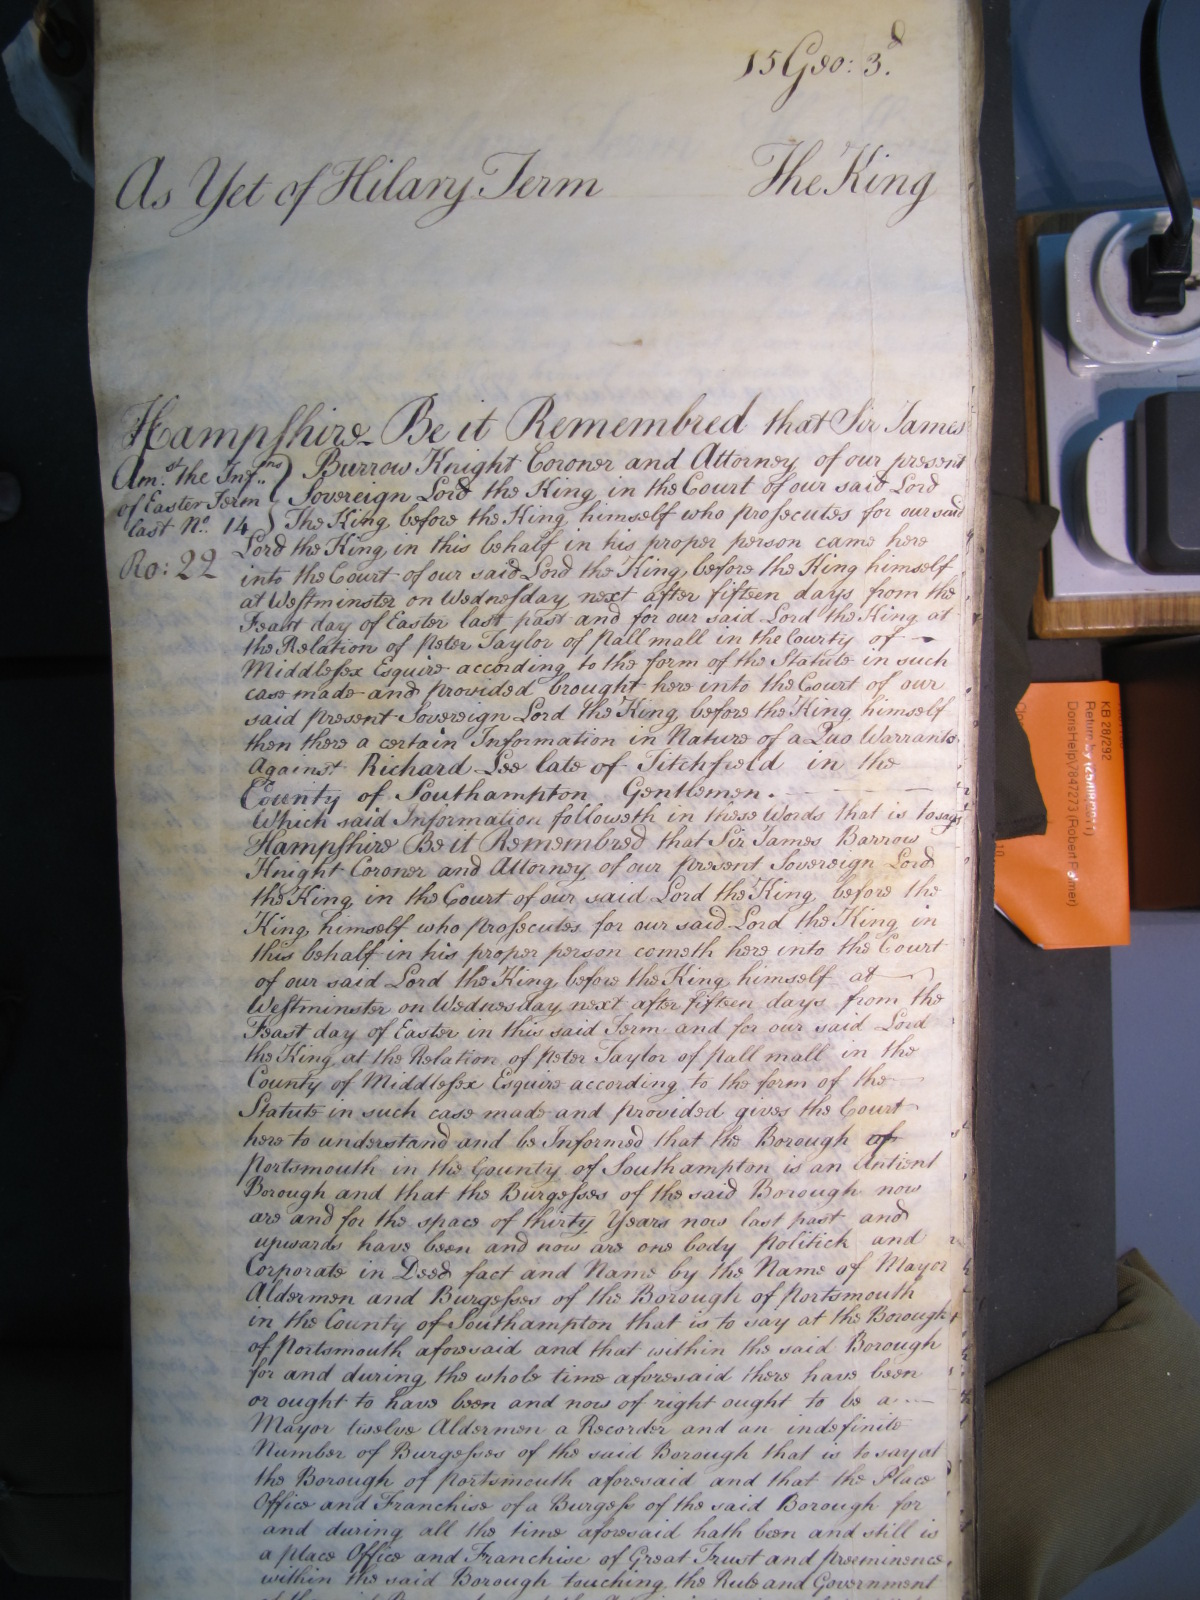 15 Geo: 3.d
As Yet of Hilary Term The King
Hampshire Be it Remembred that Sir James
Am.st the Inf.ns of Easter Term last No. 14
Ro: 22
Burrow Knight Coroner and Attorney of our present
Sovereign Lord the King in the Court of our said Lord
The King before the King himself who prosecutes for our said
Lord the King in this behalf in his proper person came here
into the Court of our said Lord the King before the King himself
at Westminster on Wednesday next after fifteen days from the
Feast day of Easter last past and for our said Lord the King at
the Relation of Peter Taylor of Pall mall in the County of
Middlesex Esquire according to the form of the Statute in such
case made and provided brought here into the Court of our
said present Sovereign Lord the King before the King himself
then there a certain Information in Nature of a Quo Warranto
Against Richard Lee late of Titchfield in the
County of Southampton Gentlemen.
Which said Information followeth in these Words that is to say
Hampshire Be it Remembred that Sir James Barrow
Knight Coroner and Attorney of our present Sovereign Lord
the King in the Court of our said Lord the King before the
King himself who prosecutes for our said Lord the King in
this behalf in his proper person cometh here into the Court
of our said Lord the King before the King himself at
Westminster on Wednesday next after fifteen days from the
Feast day of Easter in this said Term and for our said Lord
the King at the Relation of Peter Taylor of Pall mall in the
County of Middlesex Esquire according to the form of the
Statute in such case made and provided gives the Court
here to understand and be Informed that the Borough of
Portsmouth in the County of Southampton is an Antient
Borough and that the Burgesses of the said Borough now
are and for the space of thirty Years now last past and
upwards have been and now are one body Politick and
Corporate in Deed fact and Name by the Name of Mayor
Aldermen and Burgesses of the Borough of Portsmouth
in the County of Southampton that is to say at the Borough
of Portsmouth aforesaid and that within the said Borough
for and during the whole time aforesaid there have been
or ought to have been and now of right ought to be a
Mayor twelve Aldermen a Recorder and an indefinite
Number of Burgesses of the said Borough that is to say at
the Borough of Portsmouth aforesaid and that the Place
Office and Franchise of a Burgess of the said Borough for
and during all the time aforesaid hath been and still is
a place Office and Franchise of Great Trust and preeminence
within the said Borough touching the Rule and Government
KB 28/292
Return by (25/08/2011)
DorisHelp\/847273 (Robert Palmer)